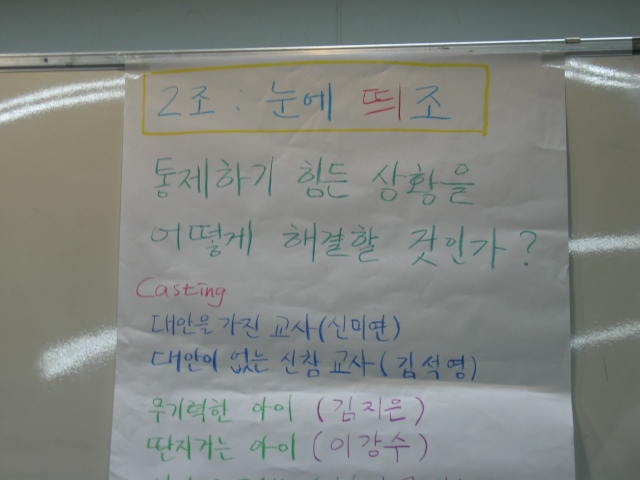 2조 : 눈에 띄조
통제하기 힘든 상황을
어떻게 해결할 것인가?
Casting
대안을 가진 교사(신미연)
대안이 없는 신참 교사(김석영)
무기력한 아이 (김지은)
딴지거는 아이 (이강수)